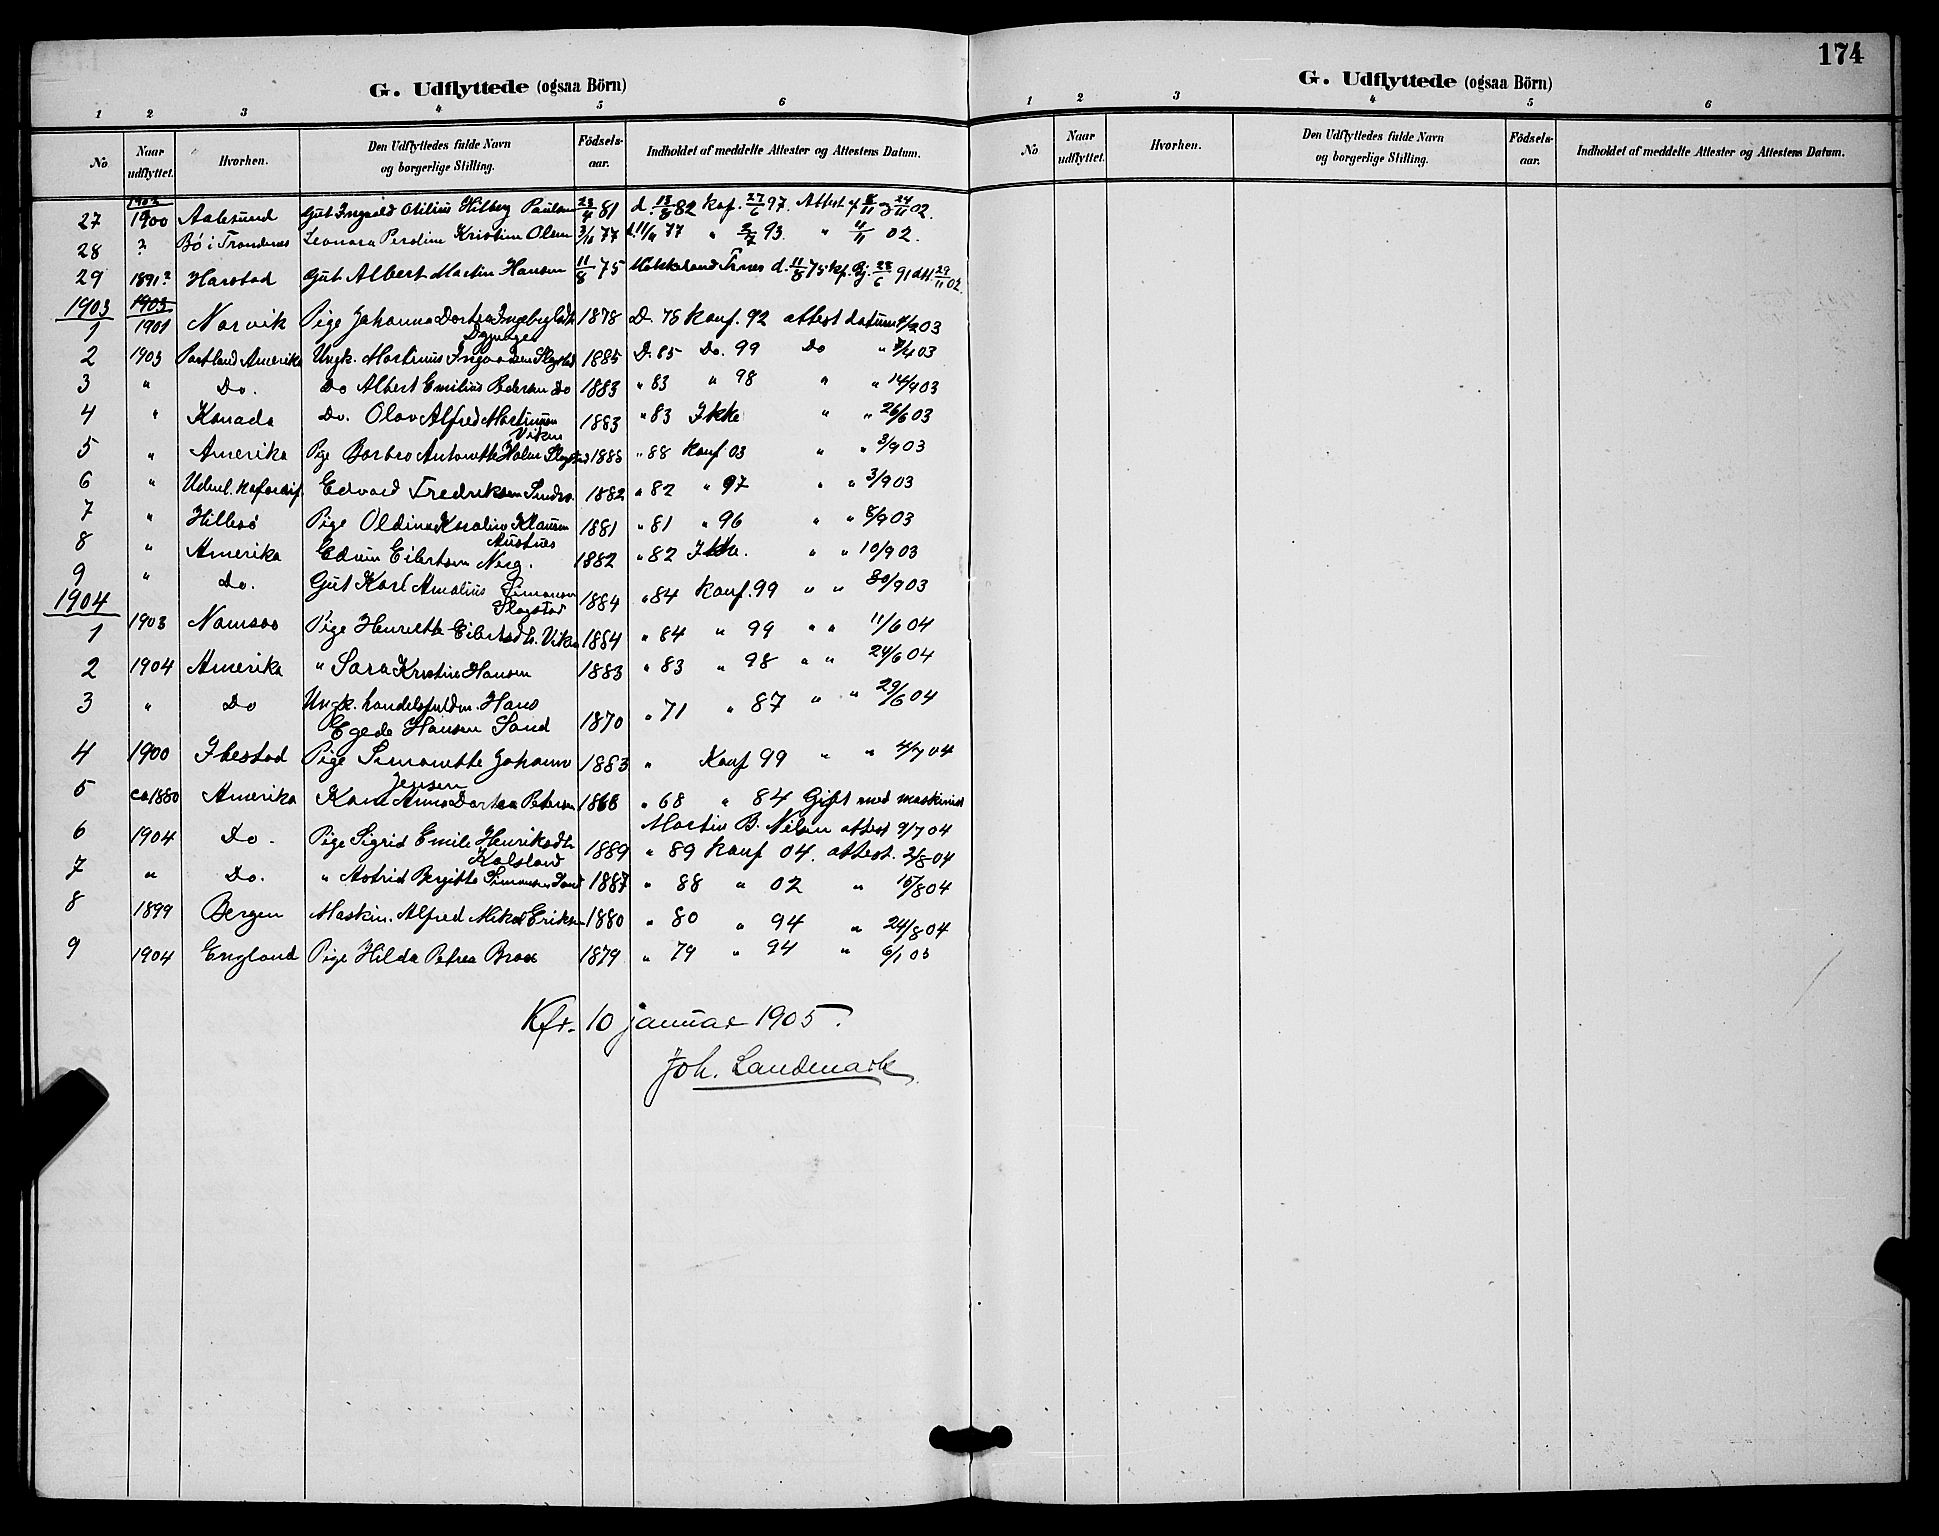 G. Udflyttede (ogsaa Börn)
1 2 3 4 5 6
No Naar udflyttet. Hvorhen. Den Udflyttedes fulde Navn og borgerlige Stilling. Födsels-aar. Indholdet af meddelte Attester og Attestens Datum.
27 1900 Aalesund Gut Ingvald Otilius Hilberg Paulsen 81 d. 82 kof. 27/6 97. Attest 02.
28 ? Bö i Trondenes Leonora Kristine Olsen 77 77 " 93. " 02.
29 1891? Harstad Gut Albert Martin Hansen 11/8 75 d. 11/8 75 28/6 91 29/11 02.
1903 1903
1 1901 Narvik Pige Johanna Dortea 1878 D. 78 Konf. 92 attest datum 03
2 1903 Portland Amerika Ungk. Martinus Slagstad 1885 D. 85 Do. 99 Do " 03
3 " Do. Do Albert Emilius Pedersen Do 1883 " 83 " 98 " " 03
4 " Kanada Do. Olav Alfred Martinsen 1883 " 83 Ikke " " 26/6 03
Viken
5 " Amerika Pige Barbro Antonette 1888 " 88 konf 03 " " 3/9 03
6 " Edvard Fredriksen 1882 " 82 " 97 " " 3/9 03
7 " Hillesö Pige Oldine Karoline Klausen 1881 " 81 " 96 " " 8/9 03
Austnes
8 " Amerika Edvin Eilertsen Nerg. 1882 " 82 Ikke. " " 10/9 03
9 " Do. Gut Karl Amalius Simonsen 1884 " 84 konf. 99 " " 30/9 03
Slagstad
1904
1 1903 Namsos Pige Henriette Eilertsdtr. Viken 1884 " 84 " 99 " " 11/6 04
2 1904 Amerika " Sara Kristine Hansen 1883 " 83 " 98 " " 24/6 04
3 " Do Ungk. handelsfuldm. Hans
Egede Hansen Sand 1870 " 71 " 87 " " 29/6 04
4 1900 Ibestad Pige Simonette Johanne 1883 " Konf 99 " " 4/7 04
Jensen
5 ca 1880 Amerika Kone Anna Dortea Petersen 1868 " 68 " 84 Gift med maskinist
Martin B. Nilsen attest 9/7 04
6 1904 Do. Pige Sigrid Emile Henriksdtr. 1889 " 89 konf 04. attest. 2/8 04
Kalsland
7 " Do. " Astrid Bergitte Simonsen Sand 1887 " 88 " 02 " 15/8 04
8 1899 Bergen Maskin. Alfred Mikal Eriksen 1880 " 80 " 94 " 24/8 04
9 1904 England Pige Hilda Petrea Brox 1879 " 79 " 94 " 6/1 05
Kfr. 10 januar 1905.
Joh. Landmark
174
G. Udflyttede (ogsaa Börn)
1 2 3 4 5 6
No Naar udflyttet. Hvorhen. Den Udflyttedes fulde Navn og borgerlige Stilling. Födsels-aar. Indholdet af meddelte Attester og Attestens Datum.